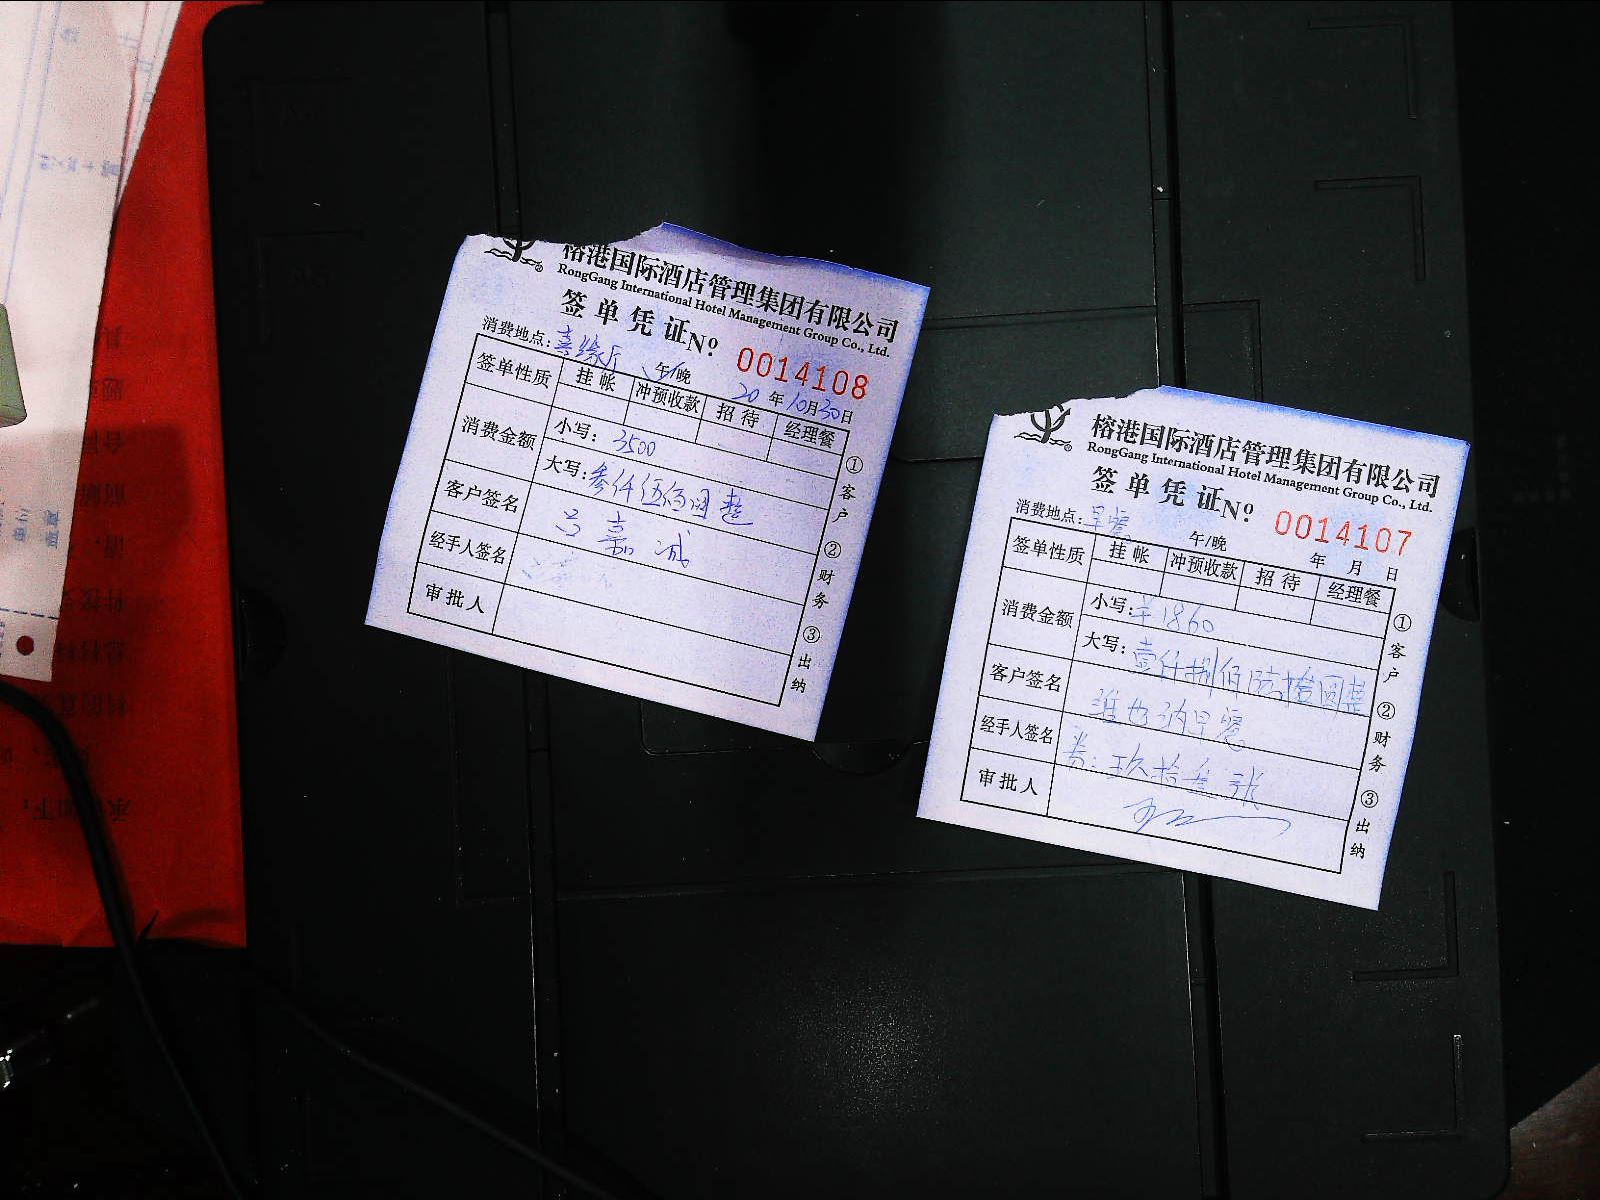 榕港国际酒店管理集团有限公司
RongGang International Hotel Management Group Co., Ltd.
签单凭证№ 0014108
消费地点：喜缘厅 午/晚 20年10月30日
签单性质 挂帐 冲预收款 招待 经理餐
消费金额 小写：3500
大写：叁仟伍佰圆整
客户签名 吕嘉诚
经手人签名
审批人
①客户 ②财务 ③出纳
榕港国际酒店管理集团有限公司
RongGang International Hotel Management Group Co., Ltd.
签单凭证№ 0014107
消费地点：早餐 午/晚 年 月 日
签单性质 挂帐 冲预收款 招待 经理餐
消费金额 小写：¥1860
大写：壹仟捌佰陆拾圆整
客户签名 维也纳早餐
经手人签名 券：玖拾叁张
审批人
①客户 ②财务 ③出纳